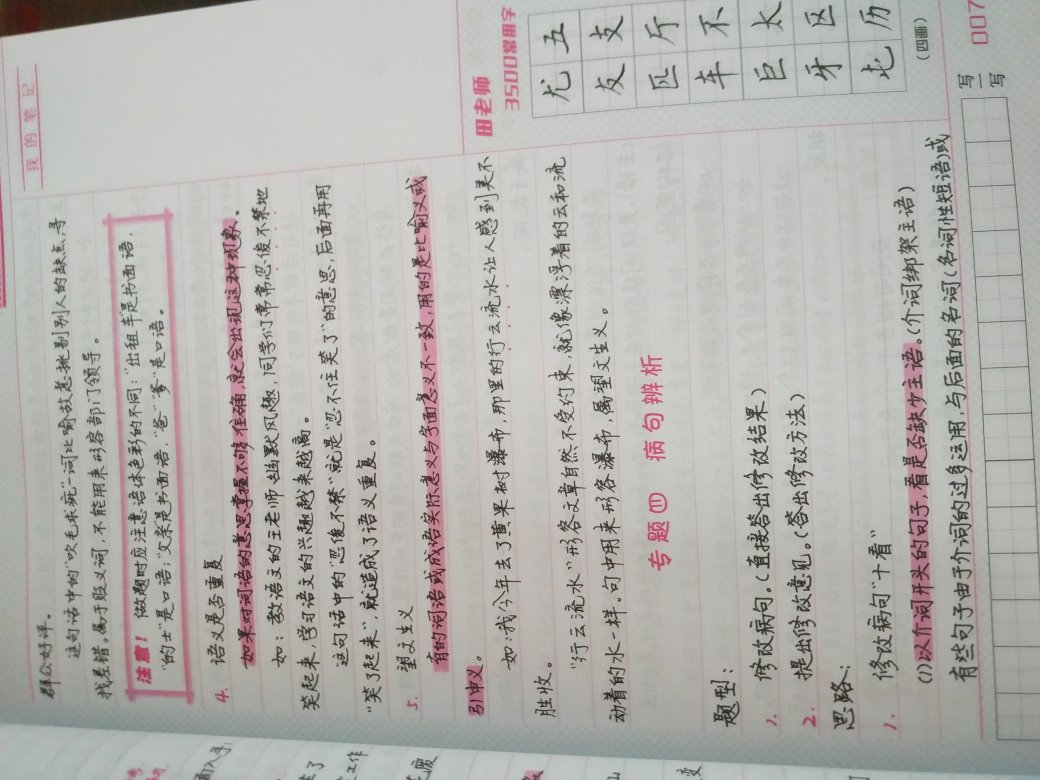 我的笔记
群众好评。
这句话中的“吹毛求疵”一词比喻故意挑剔别人的缺点，寻
找差错。属于贬义词，不能用来形容部门领导。
注意！ 做题时应注意语体色彩的不同：“出租车”是书面语，
“的士”是口语；“父亲”是书面语，“爸”“爹”是口语。
4. 语义是否重复
如果对词语的意思掌握不够准确，就会出现这种现象。
如：教语文的王老师幽默风趣，同学们常常忍俊不禁地
笑起来，学习语文的兴趣越来越高。
这句话中的“忍俊不禁”就是“忍不住笑了”的意思，后面再用
“笑了起来”，就造成了语义重复。
5. 望文生义
有的词语或成语实际意义与字面意义不一致，用的是比喻义或
引申义。
如：我今年去了黄果树瀑布，那里的行云流水让人感到美不
胜收。
“行云流水”形容文章自然不受约束，就像漂浮着的云和流
动着的水一样。句中用来形容瀑布，属望文生义。
专题⑪ 病句辨析
题型：
1. 修改病句。（直接答出修改结果）
2. 提出修改意见。（答出修改方法）
思路：
1. 修改病句“十看”
(1)以介词开头的句子，看是否缺少主语。（介词绑架主语）
有些句子由于介词的过多运用，与后面的名词（名词性短语）或
田老师
3500常用字
尤五
友支
匹斤
车不
巨太
牙区
屯历
（四画）
写一写
007